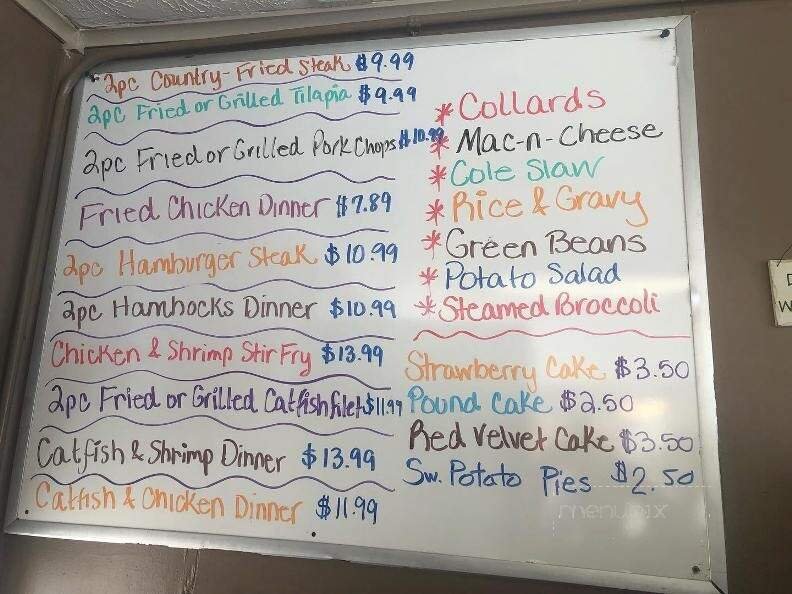 2pc Country-Fried Steak $9.99
2pc Fried or Grilled Tilapia $9.99
2pc Fried or Grilled Pork Chops $10.99
Fried Chicken Dinner $7.89
2pc Hamburger Steak $10.99
2pc Hamhocks Dinner $10.99
Chicken & Shrimp Stir Fry $13.99
2pc Fried or Grilled Catfish filet $11.99
Catfish & Shrimp Dinner $13.99
Catfish & Chicken Dinner $11.99
* Collards
* Mac-n-Cheese
* Cole Slaw
* Rice & Gravy
* Green Beans
* Potato Salad
* Steamed Broccoli
Strawberry Cake $3.50
Pound Cake $2.50
Red Velvet Cake $3.50
Sw. Potato Pies $2.50
menupix